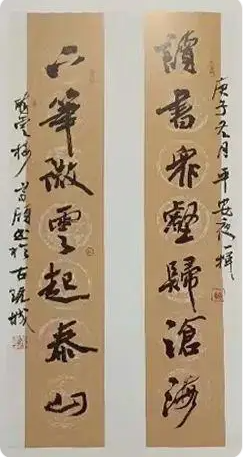 庚子冬月平安夜一揮
讀書眾壑歸滄海
下筆微雲起泰山
於古